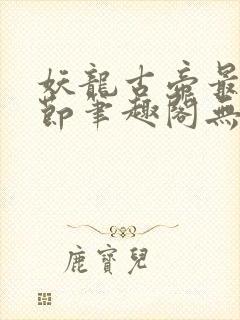 妖龍古帝最
節筆趣閣無
鹿寶兒